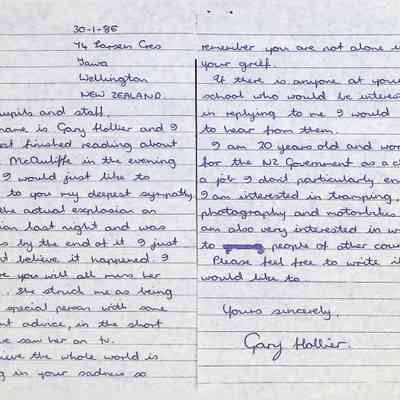 30-1-86
74 Larsen Cres
Tawa
Wellington
NEW ZEALAND.
upils and staff.
name is Gary Hollier and I
st finished reading about
McAuliffe in the evening
I would just like to
to you my deepest sympathy
the actual explosion on
ion last night and was
s by the end of it I just
t believe it happened. I
ve you will all miss her
. She struck me as being
special person with some
nt advice, in the short
e saw her on tv.
ieve the whole world is
g in your sadness so
remember you are not alone i
your grief.
If there is anyone at your
school who would be interes
in replying to me I would
to hear from them.
I am 20 years old and wor
for the NZ Government as a c
a job I dont particularly en
I am interested in tramping,
photography and motorbikes
am also very interested in w
to people of other cou
Please feel free to write i
would like to
Yours sincerely,
Gary Hollier.